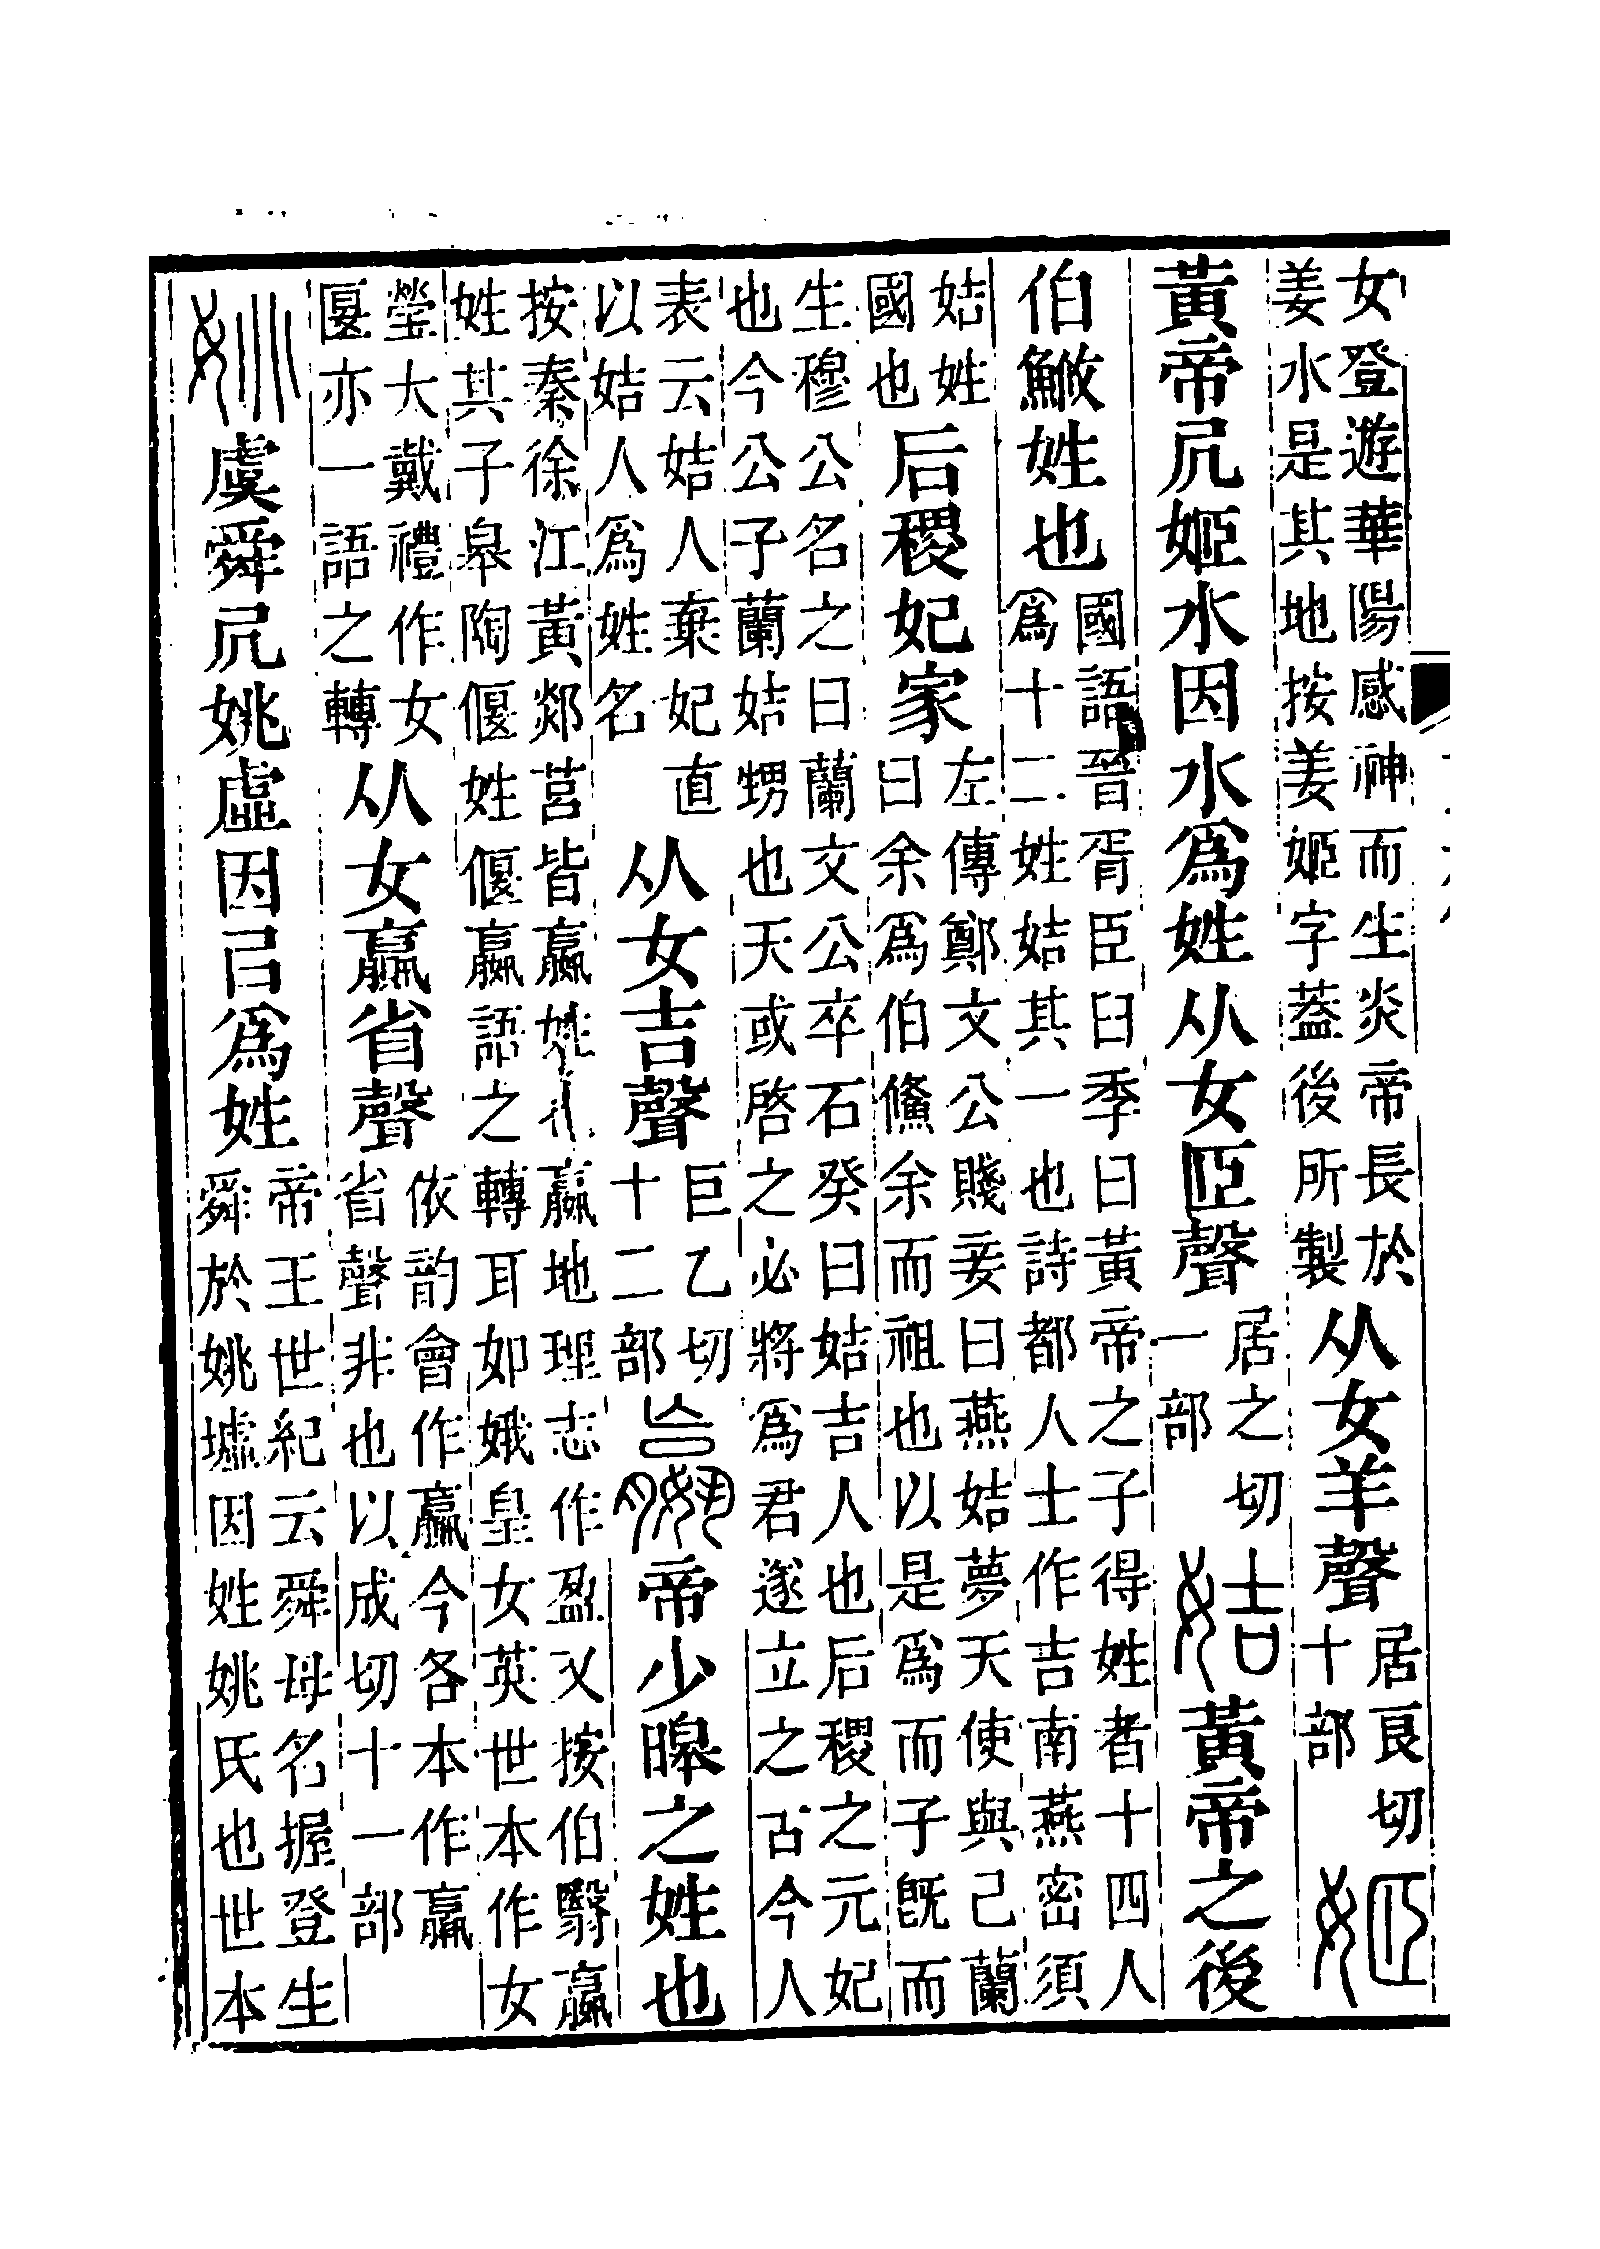 女登遊華陽感神而生炎帝長於
姜水是其地按姜姬字蓋後所製
从女羊聲
居良切
十部
姬
黃帝凥姬水因水爲姓从女𦣝聲
居之切
一部
姞
黃帝之後
伯鯈姓也
國語晉胥臣臼季曰黃帝之子得姓者十四人
爲十二姓姞其一也詩都人士作吉南燕密須
姞姓
國也
后稷妃家
左傳鄭文公賤妾曰燕姞夢天使與己蘭
曰余爲伯鯈余而祖也以是爲而子旣而
生穆公名之曰蘭文公卒石癸曰姞吉人也后稷之元妃
也今公子蘭姞甥也天或啓之必將爲君遂立之古今人
表云姞人棄妃直
以姞人爲姓名
从女吉聲
巨乙切
十二部
嬴
帝少暤之姓也
按秦徐江黃郯莒皆嬴姓也嬴地理志作盈又按伯翳嬴
姓其子皋陶偃姓偃嬴語之轉耳如娥皇女英世本作女
瑩大戴禮作女
匽亦一語之轉
从女羸省聲
依韵會作羸今各本作羸
省聲非也以成切十一部
姚
虞舜凥姚虛因㠯爲姓
帝王世紀云舜母名握登生
舜於姚墟因姓姚氏也世本